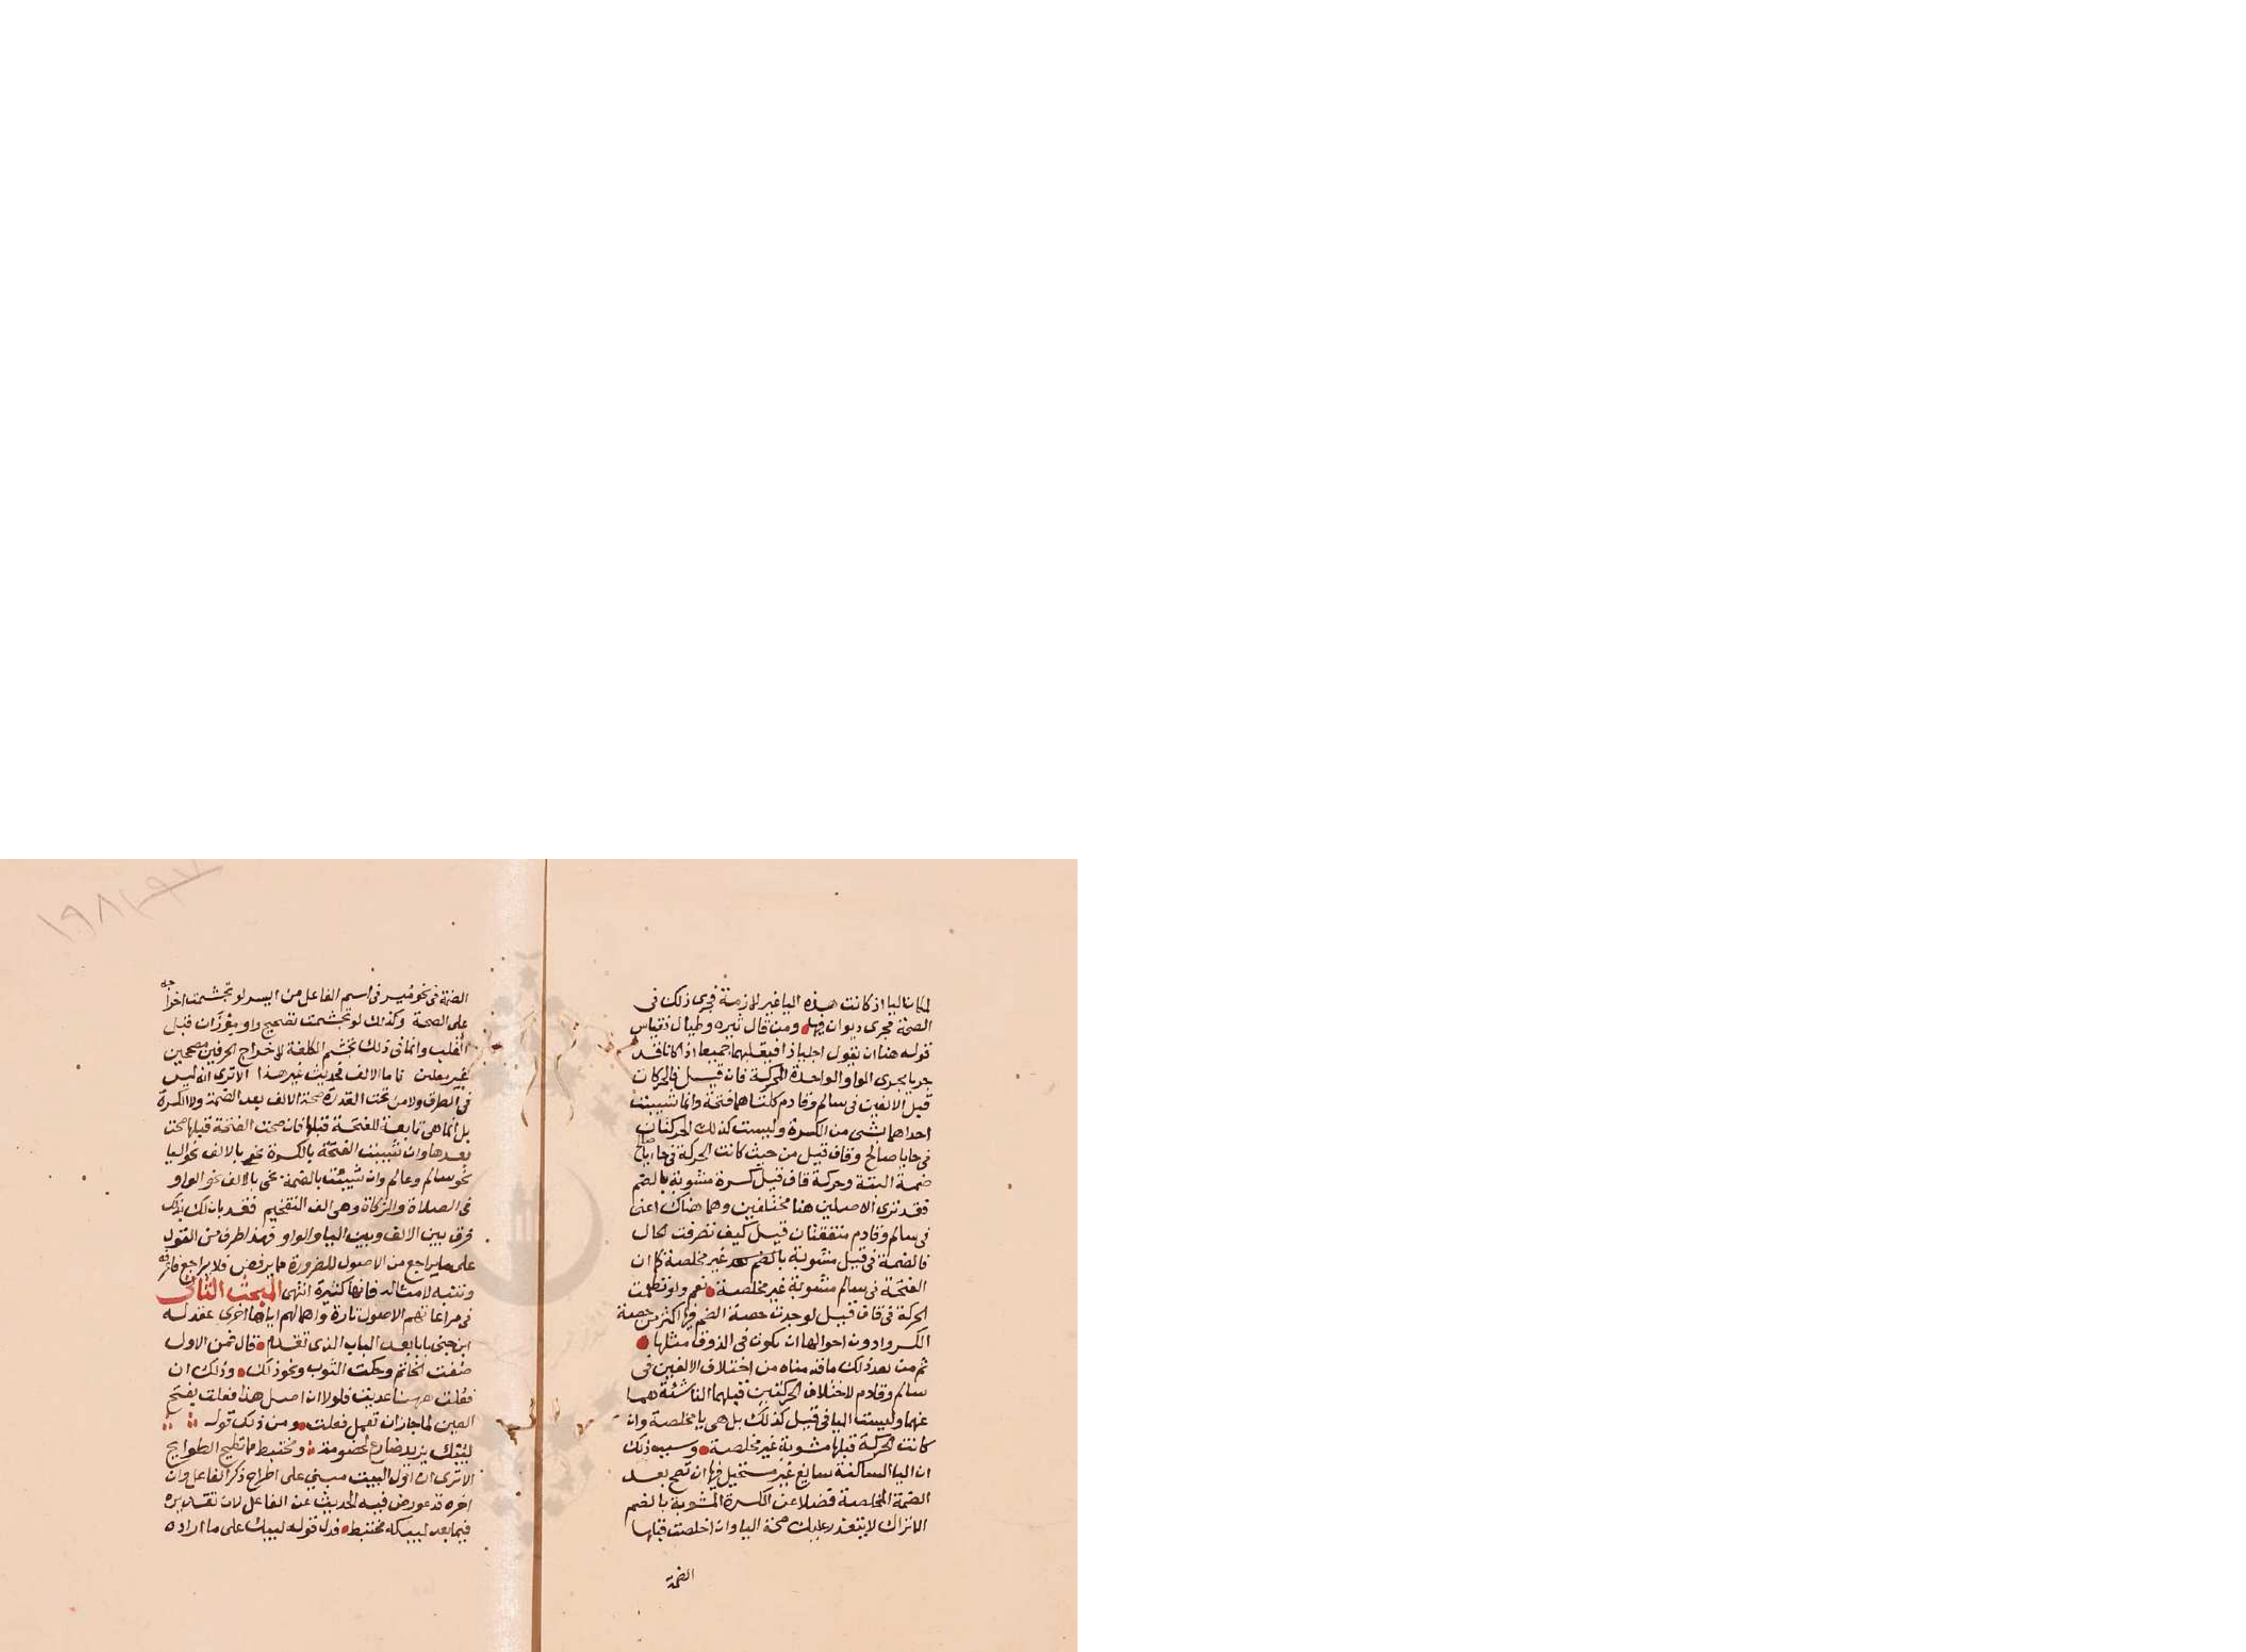 لمكان اليا اذ كانت هذه اليا غير لازمة فجرى ذلك فى
الصحة مجرى ديوان فيها ومن قال ثيره وطيال فقياس
قوله هنا ان يقول اجلياذا فيقلبهما جميعا اذ كانا قد
جريا مجرى الواو الواحدة المتحركة فان قيل فالحركات
قبل الالفين فى سالم وقادم كلتاهما فتحة وانما شيبت
احداهما بشى من الكسرة وليست كذلك الحركتان
فى حايا صالح وقاف قيل من حيث كانت الحركة فى حايا صالح
ضمة البتة وحركة قاف قيل كسرة مشوبة بالضم
فقد نرى الاصلين هنا مختلفين وهما هناك اعنى
فى سالم وقادم متفقتان قيل كيف تصرفت الحال
فالضمة فى قيل مشوبة بالضم غير مخلصة كما ان
الفتحة فى سالم مشوبة غير مخلصة نعم ولو تطعمت
الحركة فى قاف قيل لوجدت حصة الضم فيها اكثر من حصة
الكسر وادون احوالها ان يكون فى الذوق مثلها
ثم من بعد ذلك ما قدمناه من اختلاف الالفين فى
سالم وقادم لاختلاف الحركتين قبلهما الناشئة هما
عنهما وليست اليا فى قيل كذلك بل هى يا مخلصة وان
كانت الحركة قبلها مشوبة غير مخلصة وسبب ذلك
ان اليا الساكنة سايغ غير مستحيل فيها ان تصح بعد
الضمة المخلصة فضلا عن الكسرة المشوبة بالضم
الا تراك لا يتعذر عليك صحة اليا وان اخلصت قبلها
الضمة
الضمة فى نحو ميسر فى اسم الفاعل من ايسر لو تجشمت اخراجه
على الصحة وكذلك لو تجشمت تصحيح واو موزان قبل
القلب وانما فى ذلك تجشم الكلفة لاخراج الحرفين مصححين
غير معلين فاما الالف فحديث غير هذا الا ترى انه ليس
فى الطوق ولا من تحت القدرة صحة الالف بعد الضمة ولا الكسرة
بل انما هى تابعة للفتحة قبلها فان صحت الفتحة قبلها صحت
بعدها وان شيبت الفتحة بالكسرة نحى بالالف نحو اليا
نحو سالم وعالم وان شيبت بالضمة نحى بالالف نحو الواو
فى الصلاة والزكاة وهى الف التفخيم فقد بان لك بذلك
فرق بين الالف وبين اليا والواو فهذا طرف من القول
على ما يراجع من الاصول للضرورة مما يرفض فلا يراجع فاعرفه
وتنبه لامثاله فانها كثيرة انتهى المبحث الثانى
فى مراعاتهم الاصول تارة واهمالهم اياها اخرى عقد له
ابن جنى بابا بعد الباب الذى تقدم قال فمن الاول
صغت الخاتم وحكت الثوب ونحو ذلك وذلك ان
فعلت هنا عديت فلولا ان اصل هذا فعلت بفتح
العين لما جاز ان تعمل فعلت ومن ذلك قوله
ليبك يزيد ضارع لخصومة ومختبط مما تطيح الطوايح
الا ترى ان اول البيت مبنى على اطراح ذكر الفاعل وان
اخره قد عورض فيه الحديث عن الفاعل لان تقديره
فيما بعد ليبكه مختبط فدل قوله ليبك على ما اراده